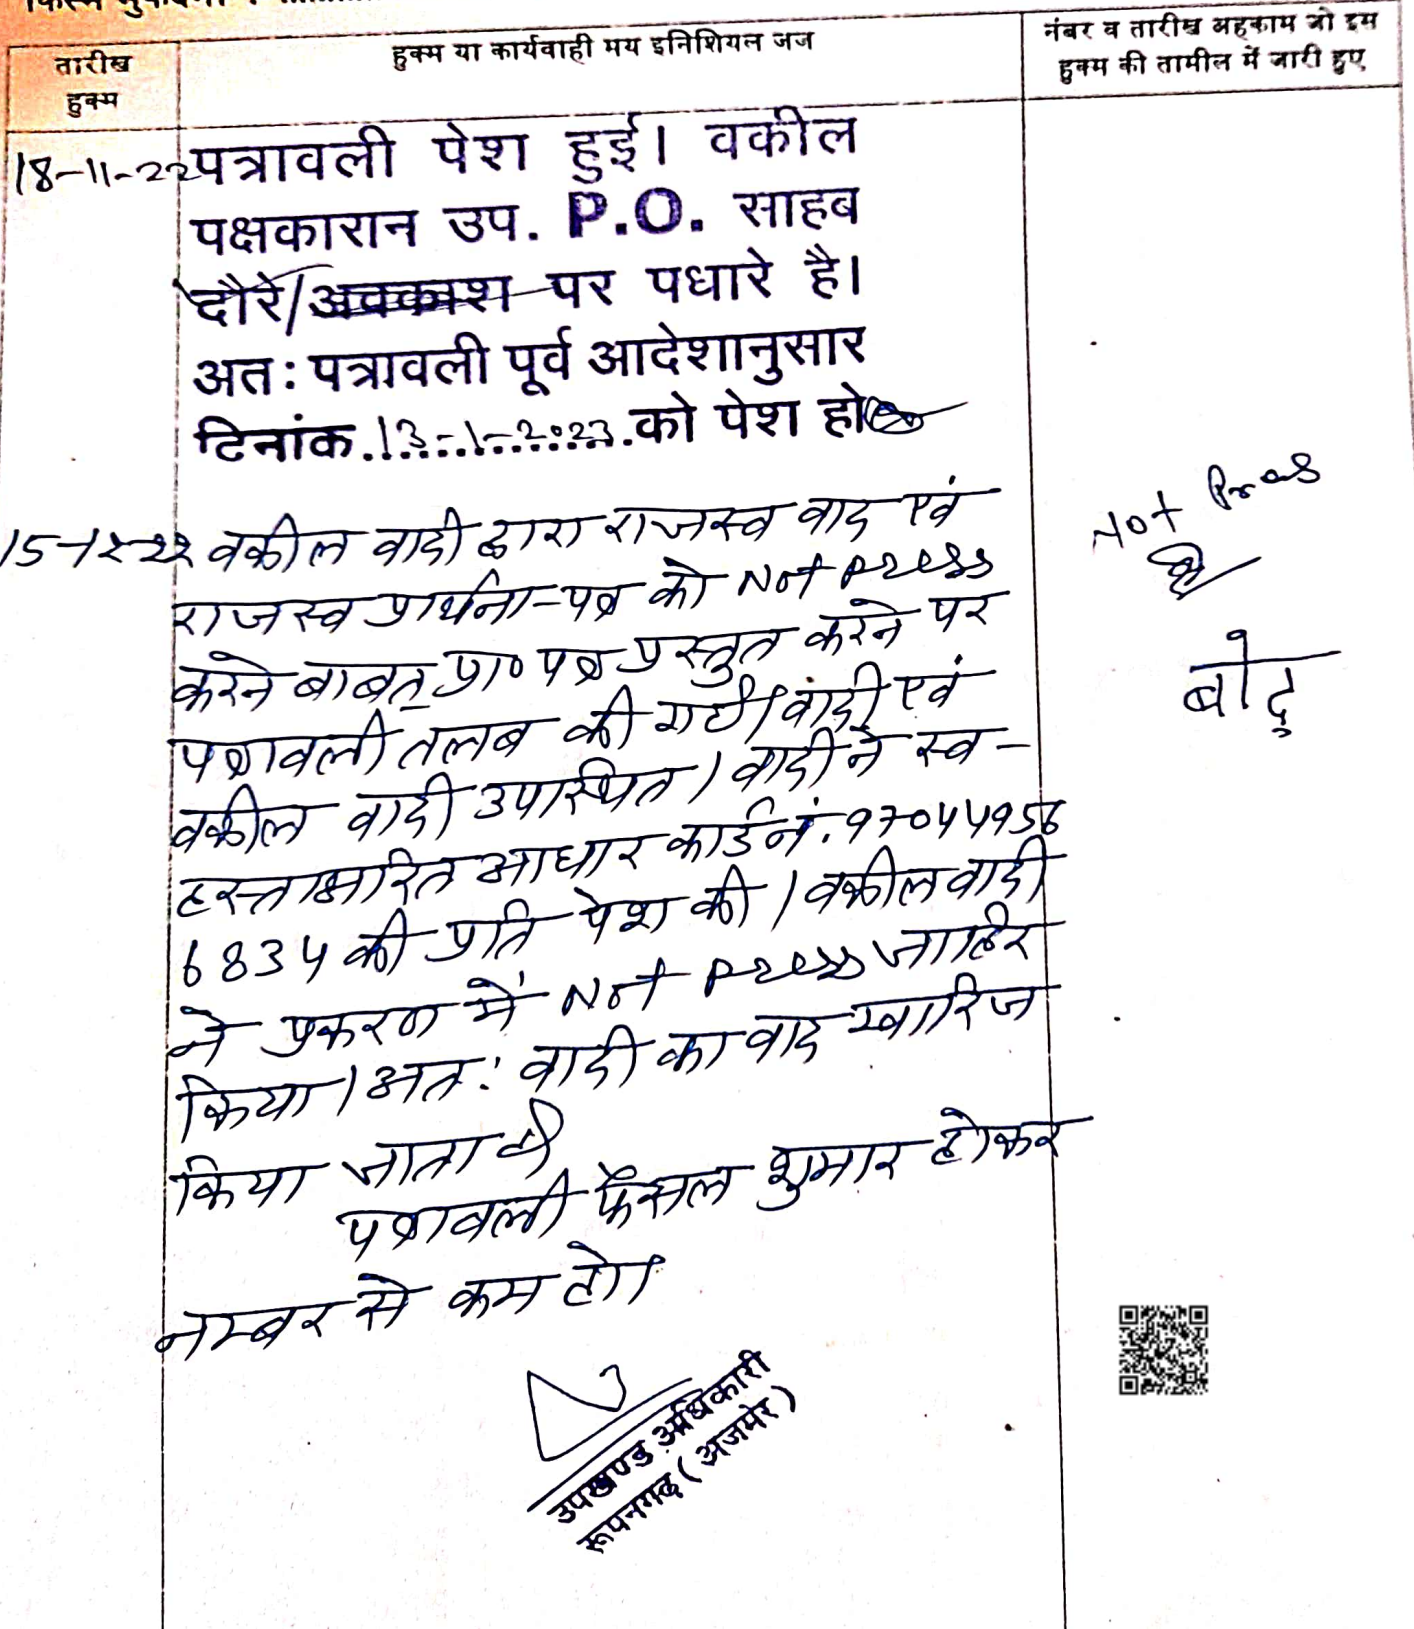 तारीख
हुक्म
हुक्म या कार्यवाही मय इनिशियल जज
नंबर व तारीख अहकाम जो इस
हुक्म की तामील में जारी हुए
18-11-22 पत्रावली पेश हुई। वकील
पक्षकारान उप. P.O. साहब
दौरे/अवकाश पर पधारे है।
अतः पत्रावली पूर्व आदेशानुसार
दिनांक.13-1-2023.को पेश हो
15-12-22 वकील वादी द्वारा राजस्व वाद एवं
राजस्व प्रार्थना-पत्र को Not Press
करने बाबत् प्रा० पत्र प्रस्तुत करने पर
पत्रावली तलब की गई। वादी एवं
वकील वादी उपस्थित। वादी ने स्व-
हस्ताक्षरित आधार कार्ड नं. 97044956
6834 की प्रति पेश की। वकील वादी
ने प्रकरण में Not Press जाहिर
किया। अतः वादी का वाद खारिज
किया जाता है।
पत्रावली फैसल शुमार होकर
नम्बर से कम हो।
Not Press
उपखण्ड अधिकारी
रूपनगढ़ (अजमेर)